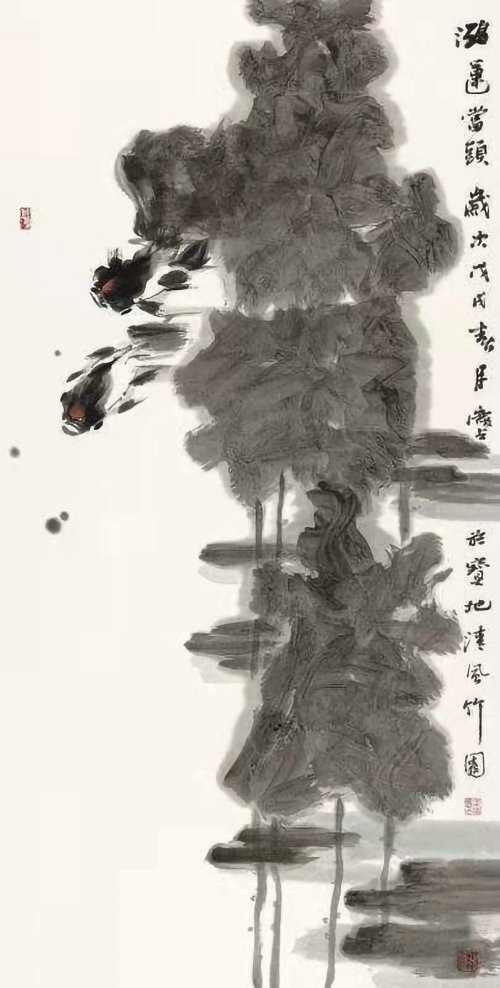 鴻運當頭 歲次戊戌春月 於寶地清風竹園